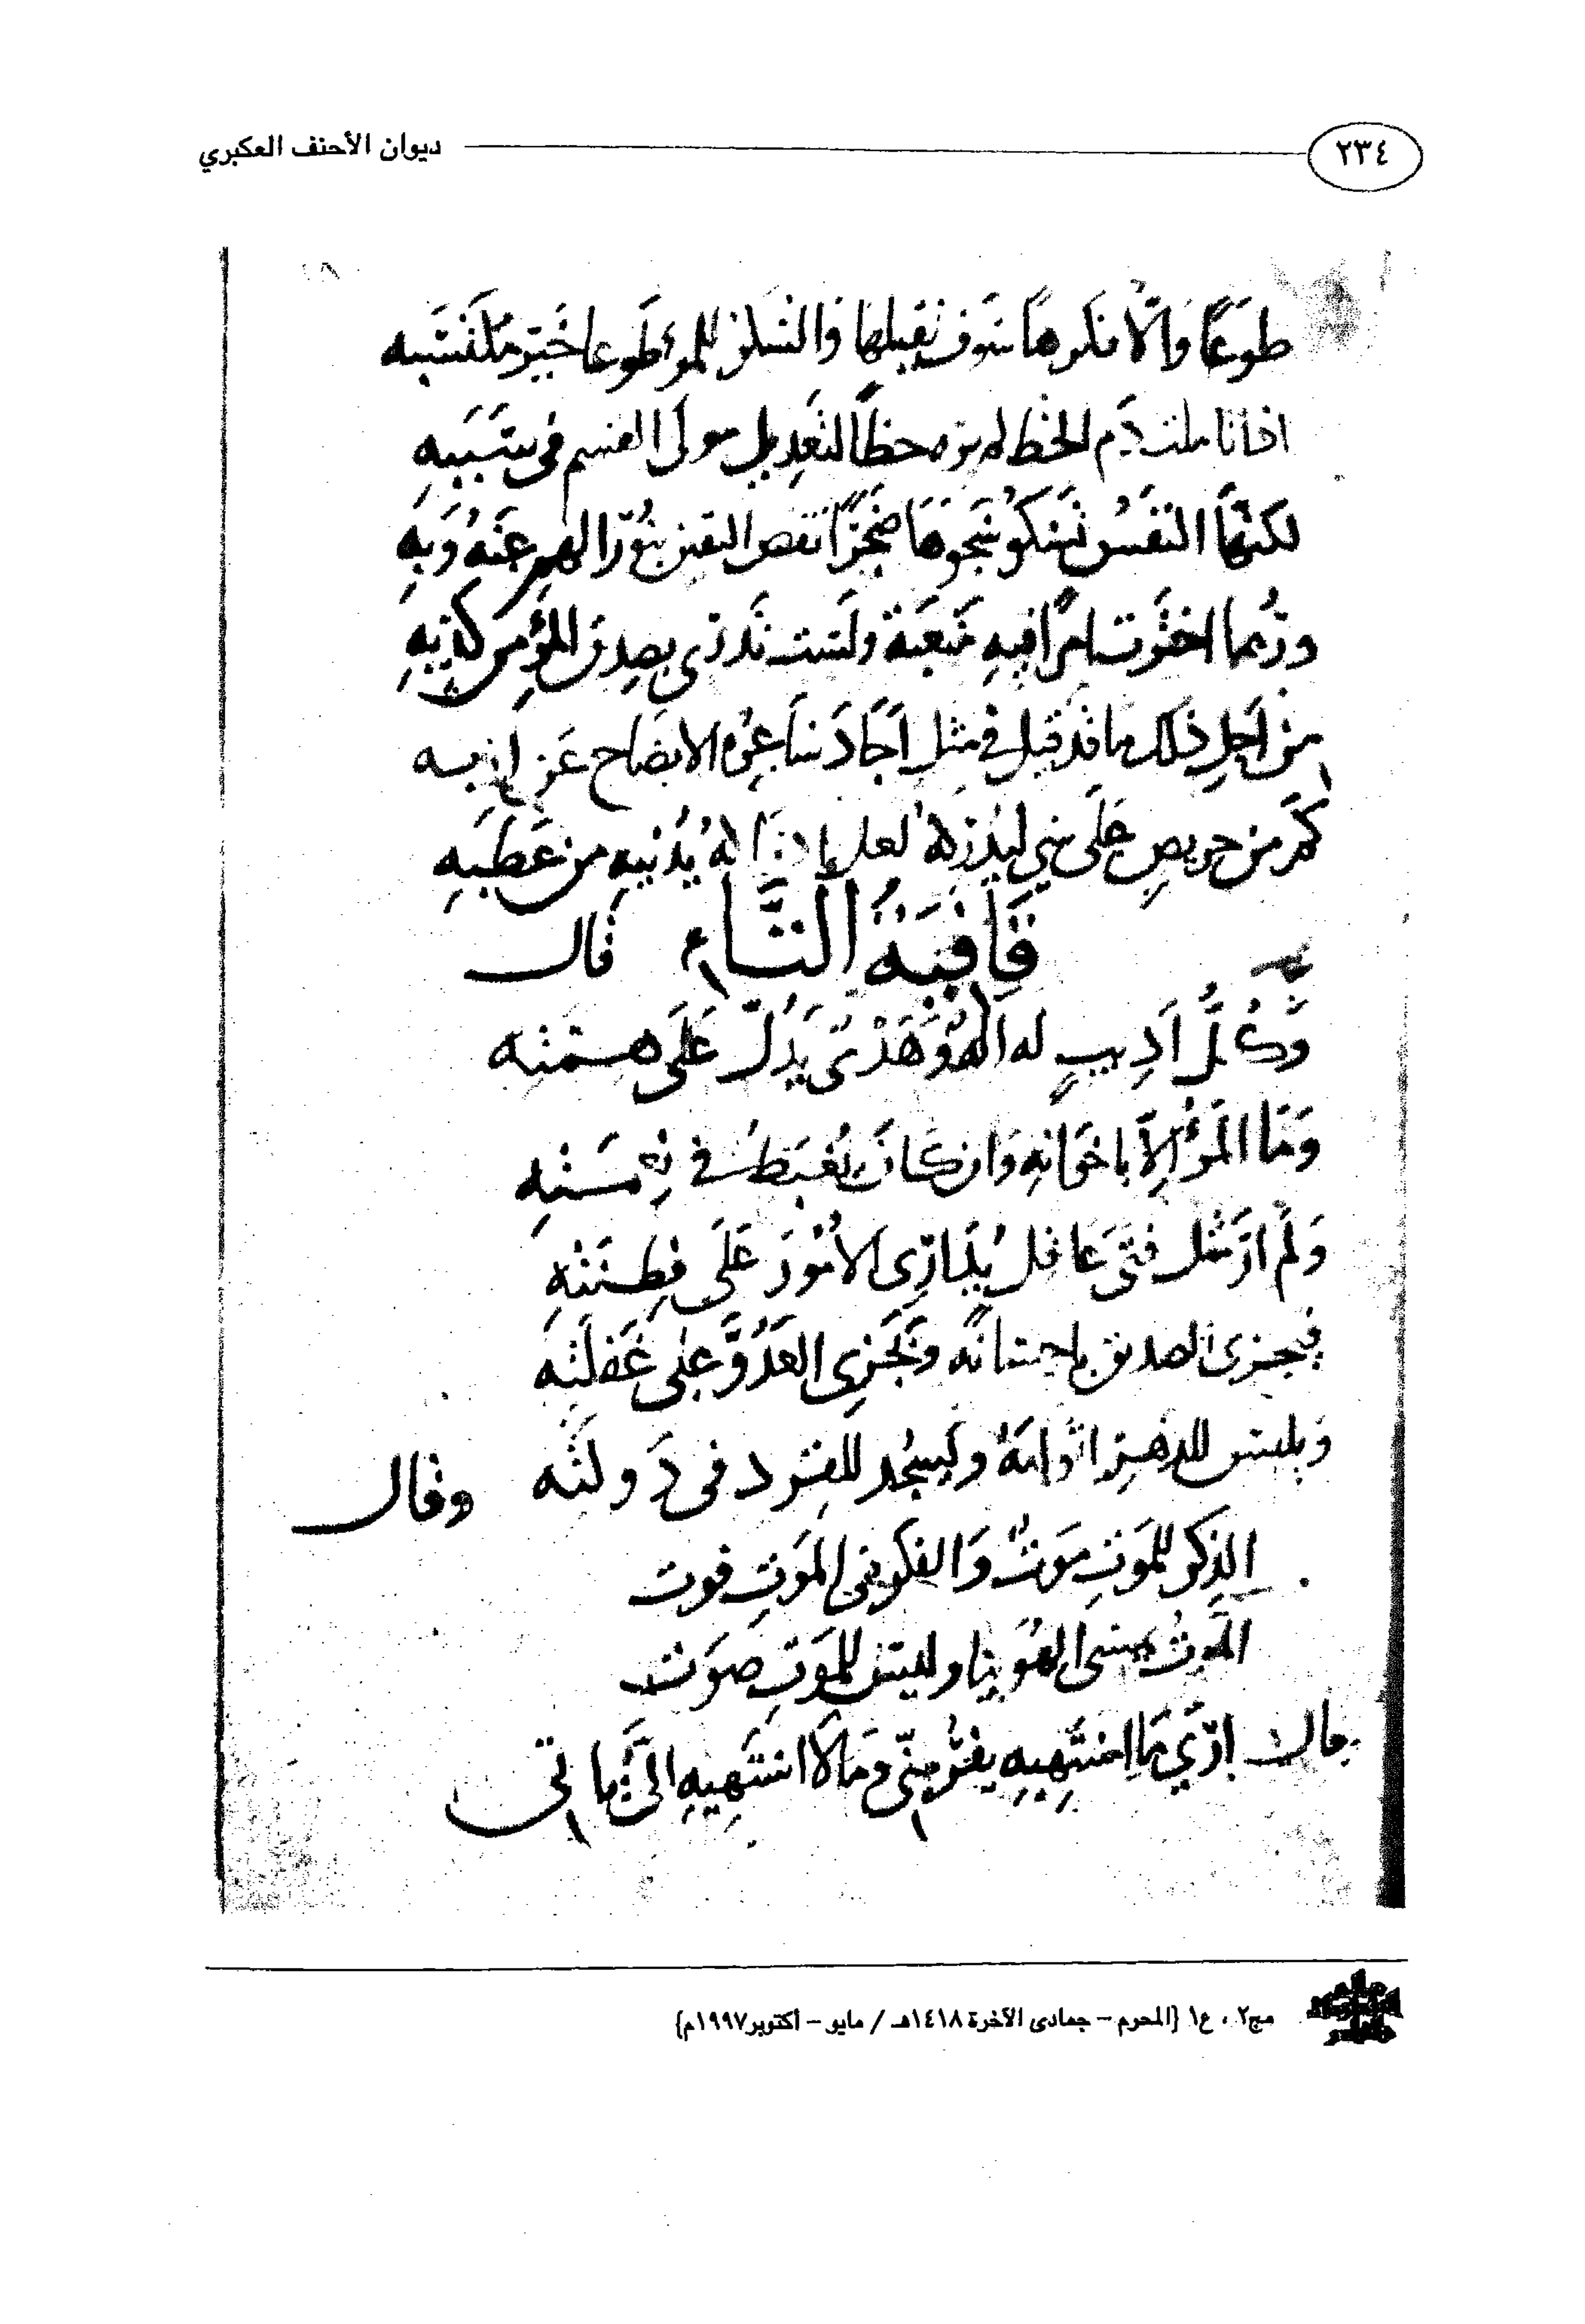 ٢٣٤
ديوان الأحنف العكبري
طَوعًا وَالّا فكرهًا سَوف يقبلها وَالشكر للمرءِ طَوعا خَير مكتَسَبِه
اذا تاملت ذم الحظ لم تره حظًا لتَعدِيل مولى القسم في سَبَبِهِ
لكنّها النفسُ تَشكو شَجوهَا ضَجَرًا نقص اليقين الهم عَنهُ وَبِهِ
ورُبما اخترت امرًا فيهِ مَتعَبَة ولَست تَدرى بصِدق المرءِ من كذبِهِ
من اَجلِ ذلك ما قد قيل في مثل اَجَادَنا الايضاح عَن
كَم من حريصٍ عَلَى شيءٍ ليُدرِكهُ لعل يُدنيهِ من عَطَبِهِ
قَافِيَةُ التَّاءِ قال
وَكُلُّ اَدِيبٍ له هَدْىٌ يَدُلّ عَلَى همته
وَمَا المَرءُ اِلّا باخوَانِهِ وَان كَانَ يُغبَطُ في نِعمَتِهِ
وَلَم ارَ مثل فتًى عَاقل يُدَارِى الاُمُورَ عَلَى فِطنَتِهِ
فيجزى الصديق باحسَانه وَيَجزِى العَدُوَّ على غَفلَتِه
وَيلبس للدهر اثوابَهُ وَيَسجُد للقرد فى دَولته وقال
الذِكر للمَوتِ مَوتٌ وَالفكر فى المَوتِ فوت
المَوتُ يمشى الهُوَينا وليس للمَوتِ صَوت
وقال ارَى مَا اشتَهِيهِ يفرُّ مِنّى ومَا لا اشتَهِيهِ الىَّ ياتى
مج٢ ، ع١ {المحرم – جمادى الآخرة ١٤١٨هـ / مايو – أكتوبر ١٩٩٧م}